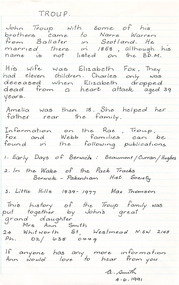 TROUP.
John Troup with some of his
brothers came to Narre Warren
from Ballater in Scotland. He
married there in 1859, although his
name is not listed on the BDM.
His wife was Elizabeth Fox. They
had eleven children. Charles only was
deceased when Elizabeth dropped
dead from a heart attack aged 39
years.
Amelia was then 18. She helped her
father rear the family.
Information on the Rae, Troup,
Fox and Webb families can be
found in the following publications
1. Early Days of Berwick - Beaumont/Curran/Hughes
2. In the Wake of the Pack Tracks
Berwick - Pakenham Hist Society
3. Little Hills 1839-1977 Max Thomson
This history of the Troup family was
put together by John's great
grand daughter
Mrs Ann Smith
24 Whitworth St, Westmead N.S.W 2145
Ph. 02/ 635 0449
If anyone has any more information
Ann would love to hear from you
A. Smith
4-6-1991